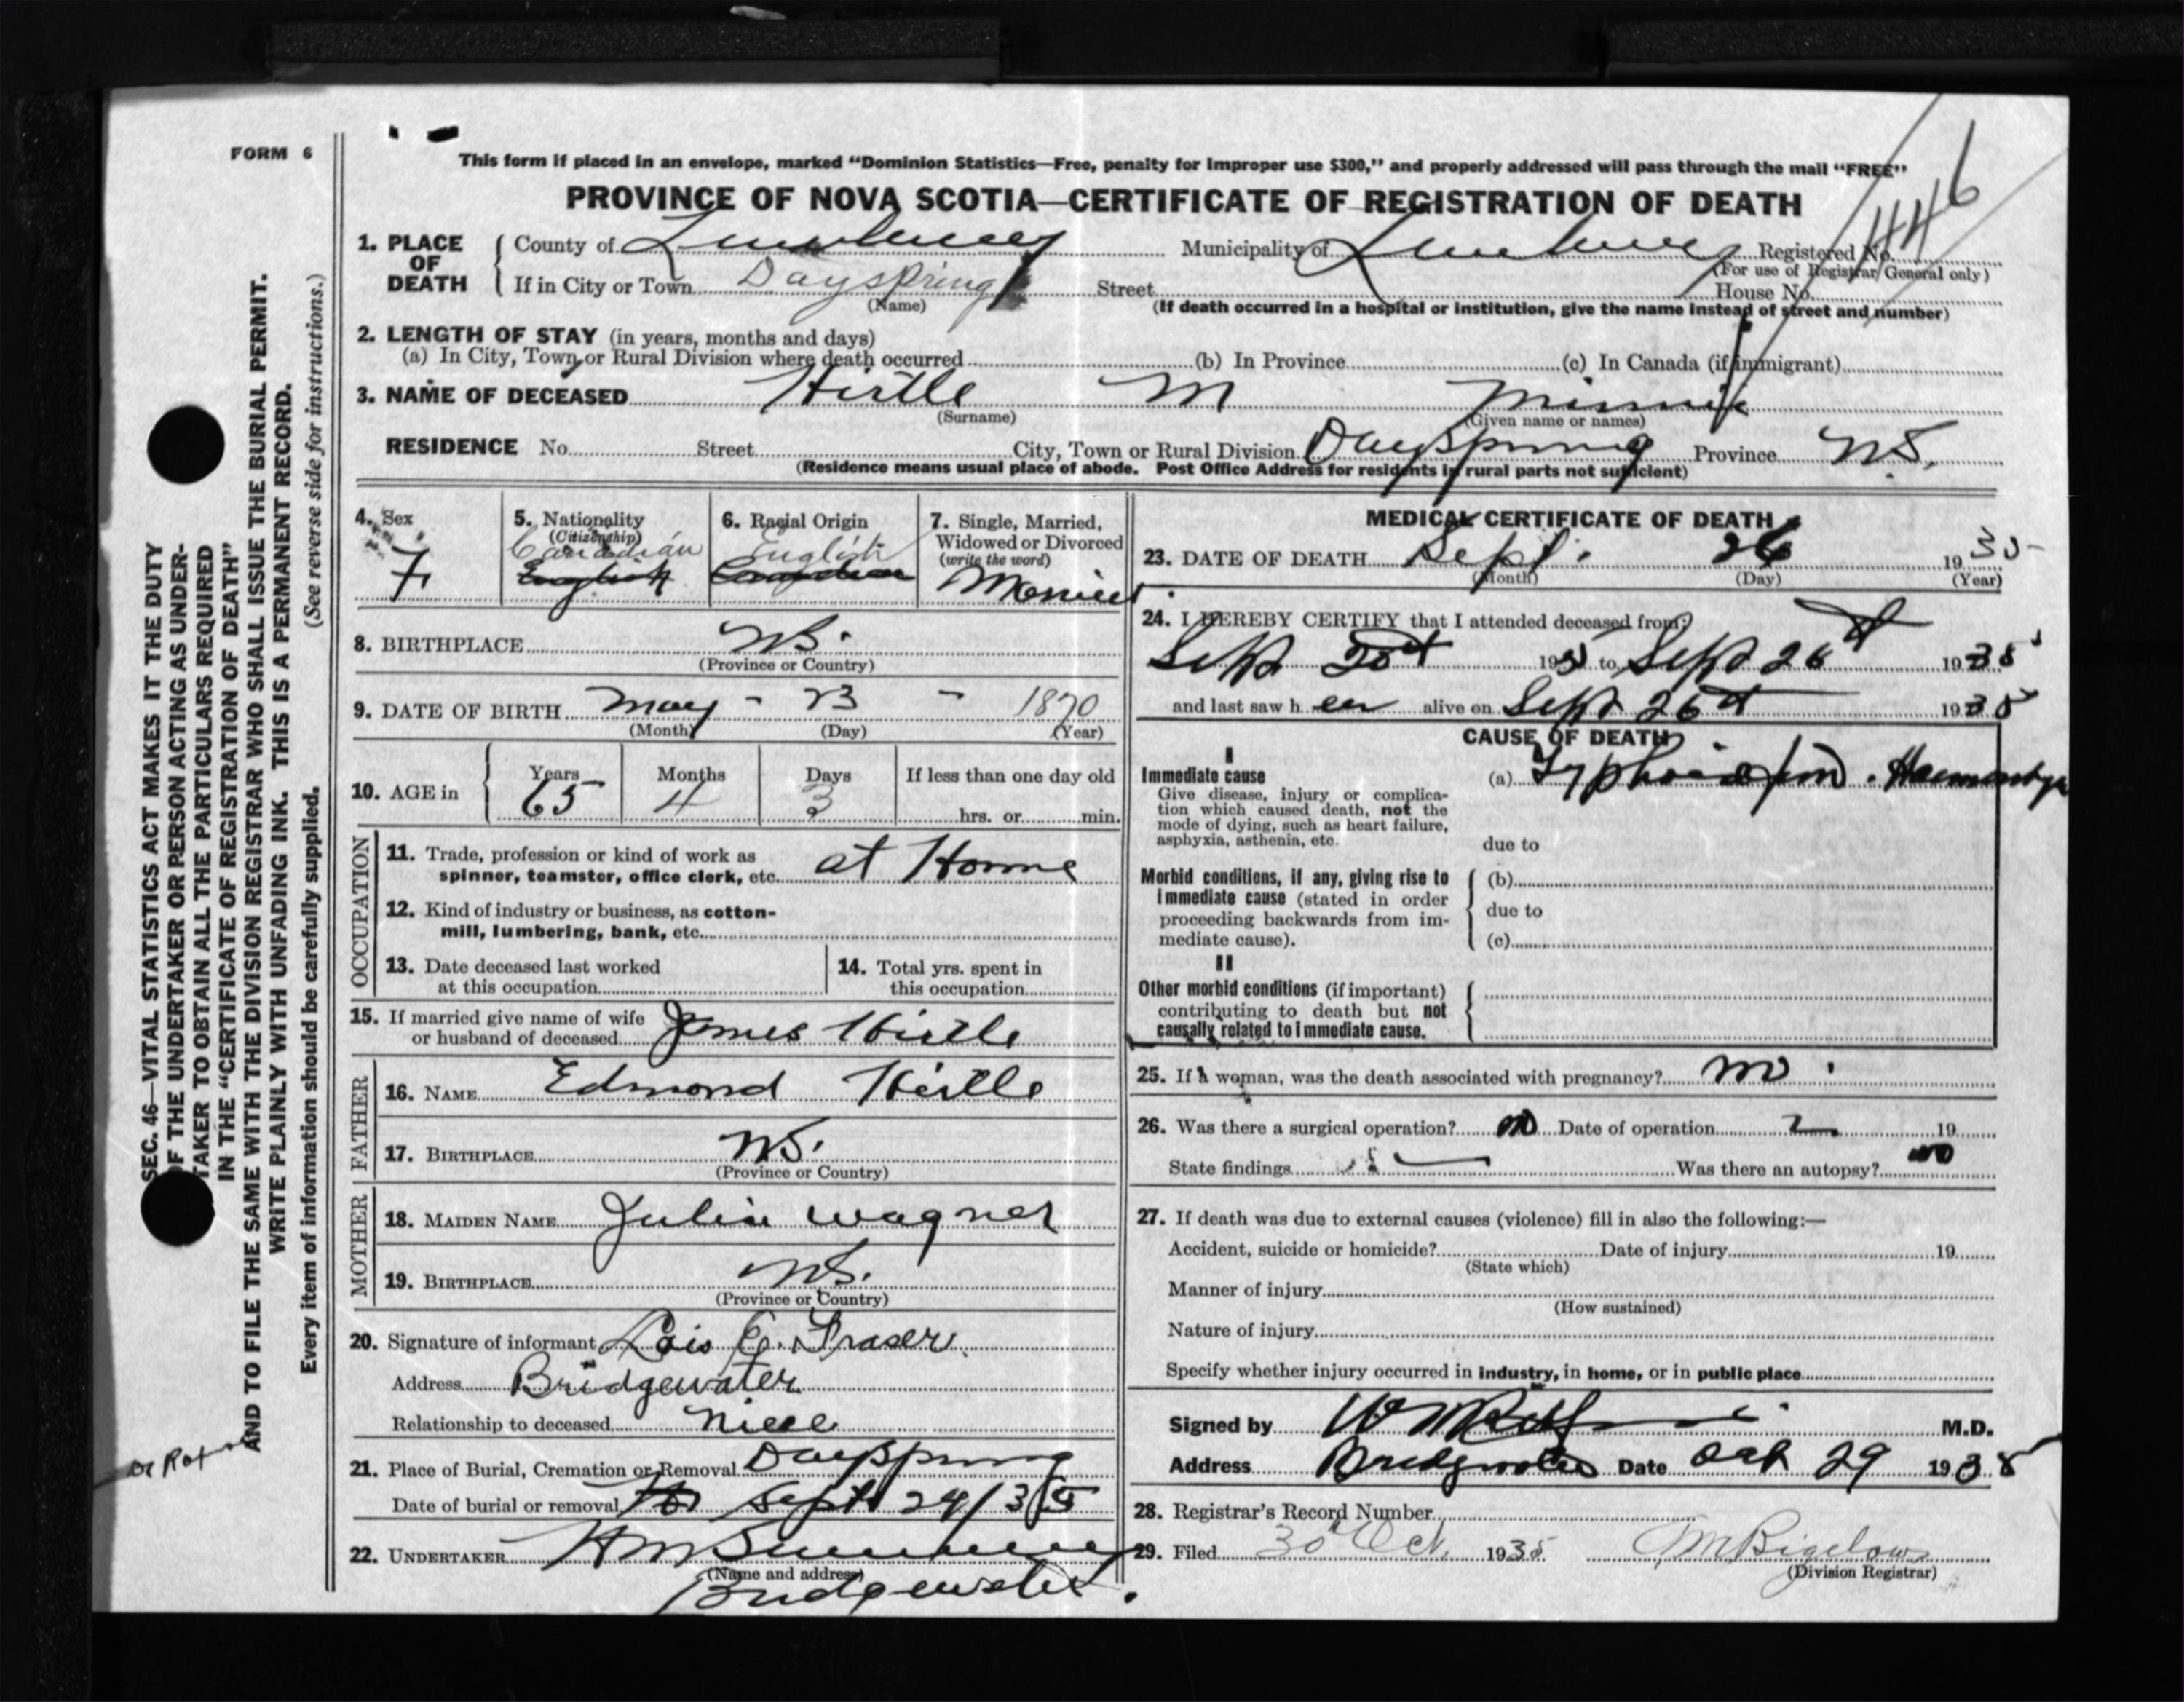 FORM 6
This form if placed in an envelope, marked "Dominion Statistics—Free, penalty for improper use $300," and properly addressed will pass through the mail "FREE"
PROVINCE OF NOVA SCOTIA—CERTIFICATE OF REGISTRATION OF DEATH
446
1. PLACE OF DEATH { County of Lunenburg Municipality of Lunenburg Registered No.
(For use of Registrar General only)
If in City or Town Dayspring Street House No.
(Name) (If death occurred in a hospital or institution, give the name instead of street and number)
2. LENGTH OF STAY (in years, months and days)
(a) In City, Town, or Rural Division where death occurred (b) In Province (c) In Canada (if immigrant)
3. NAME OF DECEASED Hirtle M Minnie
(Surname) (Given name or names)
RESIDENCE No. Street City, Town or Rural Division Dayspring Province N.S.
(Residence means usual place of abode. Post Office Address for residents in rural parts not sufficient)
4. Sex F.
5. Nationality (Citizenship) Canadian English
6. Racial Origin English Canadian
7. Single, Married, Widowed or Divorced (write the word) Married
8. BIRTHPLACE N.S.
(Province or Country)
9. DATE OF BIRTH May - 23 - 1870
(Month) (Day) (Year)
10. AGE in { Years 65 Months 4 Days 3 If less than one day old
hrs. or min.
OCCUPATION
11. Trade, profession or kind of work as
spinner, teamster, office clerk, etc. at Home
12. Kind of industry or business, as cotton-
mill, lumbering, bank, etc.
13. Date deceased last worked
at this occupation
14. Total yrs. spent in
this occupation
15. If married give name of wife
or husband of deceased James Hirtle
FATHER
16. NAME Edmond Hirtle
17. BIRTHPLACE N.S.
(Province or Country)
MOTHER
18. MAIDEN NAME Julia Wagner
19. BIRTHPLACE N.S.
(Province or Country)
20. Signature of informant Lois E. Fraser.
Address Bridgewater
Relationship to deceased niece
21. Place of Burial, Cremation or Removal Dayspring
Date of burial or removal Sept 29/35
22. UNDERTAKER
(Name and address)
Bridgewater.
MEDICAL CERTIFICATE OF DEATH
23. DATE OF DEATH Sept. 26 1935
(Month) (Day) (Year)
24. I HEREBY CERTIFY that I attended deceased from:
Sept 20th 1935 to Sept 26th 1935
and last saw her alive on Sept 26th 1935
CAUSE OF DEATH
I
Immediate cause
Give disease, injury or complica-
tion which caused death, not the
mode of dying, such as heart failure,
asphyxia, asthenia, etc.
(a) Typhoid Haemorrhage
due to
Morbid conditions, if any, giving rise to
immediate cause (stated in order
proceeding backwards from im-
mediate cause).
(b)
due to
(c)
II
Other morbid conditions (if important)
contributing to death but not
causally related to immediate cause.
25. If a woman, was the death associated with pregnancy? no
26. Was there a surgical operation? no Date of operation 19
State findings Was there an autopsy? no
27. If death was due to external causes (violence) fill in also the following:—
Accident, suicide or homicide? Date of injury 19
(State which)
Manner of injury
(How sustained)
Nature of injury
Specify whether injury occurred in industry, in home, or in public place
Signed by M.D.
Address Bridgewater Date Oct 29 1935
28. Registrar's Record Number
29. Filed 30th Oct. 1935 Bigelow
(Division Registrar)
SEC. 46—VITAL STATISTICS ACT MAKES IT THE DUTY
OF THE UNDERTAKER OR PERSON ACTING AS UNDER-
TAKER TO OBTAIN ALL THE PARTICULARS REQUIRED
IN THE "CERTIFICATE OF REGISTRATION OF DEATH"
AND TO FILE THE SAME WITH THE DIVISION REGISTRAR WHO SHALL ISSUE THE BURIAL PERMIT.
WRITE PLAINLY WITH UNFADING INK. THIS IS A PERMANENT RECORD.
Every item of information should be carefully supplied. (See reverse side for instructions.)